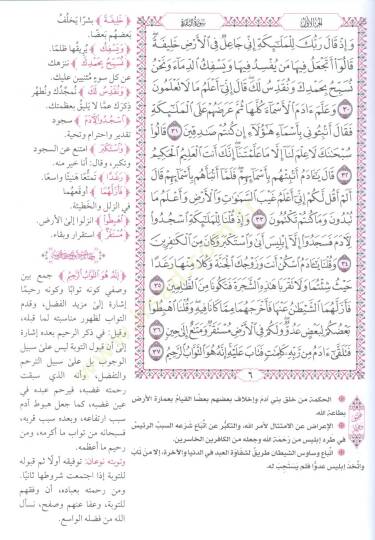 الجزء الأول
سورة البقرة
وَإِذْ قَالَ رَبُّكَ لِلْمَلَٰٓئِكَةِ إِنِّى جَاعِلٌ فِى ٱلْأَرْضِ خَلِيفَةً
قَالُوٓا۟ أَتَجْعَلُ فِيهَا مَن يُفْسِدُ فِيهَا وَيَسْفِكُ ٱلدِّمَآءَ وَنَحْنُ
نُسَبِّحُ بِحَمْدِكَ وَنُقَدِّسُ لَكَ قَالَ إِنِّىٓ أَعْلَمُ مَا لَا تَعْلَمُونَ
٣٠ وَعَلَّمَ ءَادَمَ ٱلْأَسْمَآءَ كُلَّهَا ثُمَّ عَرَضَهُمْ عَلَى ٱلْمَلَٰٓئِكَةِ
فَقَالَ أَنۢبِـُٔونِى بِأَسْمَآءِ هَٰٓؤُلَآءِ إِن كُنتُمْ صَٰدِقِينَ ٣١ قَالُوا۟
سُبْحَٰنَكَ لَا عِلْمَ لَنَآ إِلَّا مَا عَلَّمْتَنَآ إِنَّكَ أَنتَ ٱلْعَلِيمُ ٱلْحَكِيمُ
٣٢ قَالَ يَٰٓـَٔادَمُ أَنۢبِئْهُم بِأَسْمَآئِهِمْ فَلَمَّآ أَنۢبَأَهُم بِأَسْمَآئِهِمْ قَالَ
أَلَمْ أَقُل لَّكُمْ إِنِّىٓ أَعْلَمُ غَيْبَ ٱلسَّمَٰوَٰتِ وَٱلْأَرْضِ وَأَعْلَمُ مَا
تُبْدُونَ وَمَا كُنتُمْ تَكْتُمُونَ ٣٣ وَإِذْ قُلْنَا لِلْمَلَٰٓئِكَةِ ٱسْجُدُوا۟
لِـَٔادَمَ فَسَجَدُوٓا۟ إِلَّآ إِبْلِيسَ أَبَىٰ وَٱسْتَكْبَرَ وَكَانَ مِنَ ٱلْكَٰفِرِينَ
٣٤ وَقُلْنَا يَٰٓـَٔادَمُ ٱسْكُنْ أَنتَ وَزَوْجُكَ ٱلْجَنَّةَ وَكُلَا مِنْهَا رَغَدًا
حَيْثُ شِئْتُمَا وَلَا تَقْرَبَا هَٰذِهِ ٱلشَّجَرَةَ فَتَكُونَا مِنَ ٱلظَّٰلِمِينَ ٣٥
فَأَزَلَّهُمَا ٱلشَّيْطَٰنُ عَنْهَا فَأَخْرَجَهُمَا مِمَّا كَانَا فِيهِ وَقُلْنَا ٱهْبِطُوا۟
بَعْضُكُمْ لِبَعْضٍ عَدُوٌّ وَلَكُمْ فِى ٱلْأَرْضِ مُسْتَقَرٌّ وَمَتَٰعٌ إِلَىٰ حِينٍ ٣٦
فَتَلَقَّىٰٓ ءَادَمُ مِن رَّبِّهِۦ كَلِمَٰتٍ فَتَابَ عَلَيْهِ إِنَّهُۥ هُوَ ٱلتَّوَّابُ ٱلرَّحِيمُ ٣٧
٦
الحكمة من خلق بني آدم وإخلاف بعضهم بعضًا القيام بعمارة الأرض
بطاعة الله.
الإعراض عن الامتثال لأمر الله، والتكبُّر عن اتِّباع شرعه السبب الرئيس
في طرد إبليس من رحمة الله وجعله من الكافرين الخاسرين.
اتِّباع وساوس الشيطان طريق لشقاوة العبد في الدنيا والآخرة، إلا من تاب
واتَّخذ إبليس عدوًّا فلم يستجب له.
﴿خَلِيفَةً﴾ بشرًا يَخلُف
بعضهم بعضًا.
﴿وَيَسْفِكُ﴾ يريقها ظلمًا.
﴿نُسَبِّحُ بِحَمْدِكَ﴾ ننزهك
عن كل سوء مُثنين عليك.
﴿وَنُقَدِّسُ لَكَ﴾ نمجِّدك ونُطهّر
ذكرك عمّا لا يليق بعظمتك.
﴿ٱسْجُدُوا۟ لِـَٔادَمَ﴾ سجود
تقدير واحترام وتحية.
﴿وَٱسْتَكْبَرَ﴾ امتنع عن السجود
وتكبر، وقال: أنا خير منه.
﴿رَغَدًا﴾ تمتُّعًا هنيئًا واسعًا.
﴿فَأَزَلَّهُمَا﴾ أوقعهما
في الزلل والخطيئة.
﴿ٱهْبِطُوا۟﴾ انزلوا إلى الأرض.
﴿مُسْتَقَرٌّ﴾ استقرار وبقاء.
﴿إِنَّهُۥ هُوَ ٱلتَّوَّابُ ٱلرَّحِيمُ﴾ جمع بين
وصفي كونه توابًا وكونه رحيمًا
إشارة إلى مزيد الفضل، وقدم
التواب لظهور مناسبته لما قبله،
وقيل: في ذكر الرحيم بعده إشارة
إلى أن قبول التوبة ليس على سبيل
الوجوب بل على سبيل الترحم
والتفضل، وأنه الذي سبقت
رحمته غضبه، فيرحم عبده في
عين غضبه، كما جعل هبوط آدم
سبب ارتفاعه، وبعده سبب قربه،
فسبحانه من تواب ما أكرمه، ومن
رحيم ما أعظمه.
وتوبته نوعان: توفيقه أولًا ثم قبوله
للتوبة إذا اجتمعت شروطها ثانيًا.
ومن رحمته بعباده، أن وفقهم
للتوبة، وعفا عنهم وصفح، نسأل
الله من فضله الواسع.